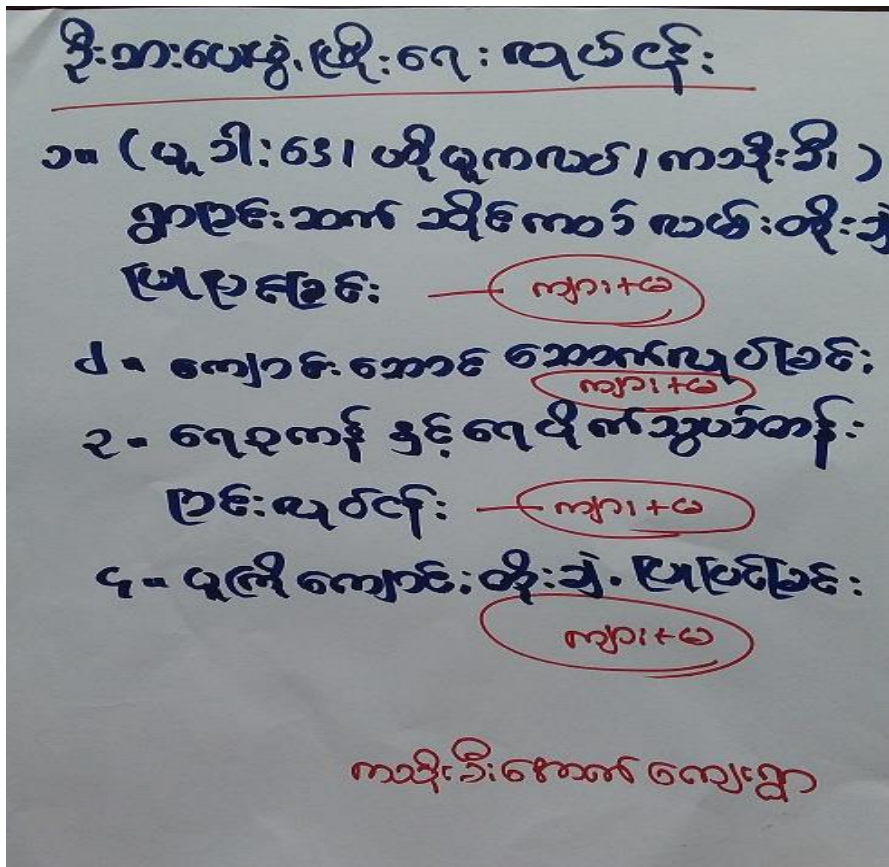 ဦးစားပေးဖွံ့ဖြိုးရေးလုပ်ငန်း
၁။ (ယူဒါးဒေ၊ ဟိုယူကလပ်၊ ကသိုးဒီး)
ရွာချင်းဆက် ဆိုင်ကယ် လမ်းတိုးချဲ့
ပြုပြင်ခြင်း — ကျား+မ
၂။ ကျောင်းဆောင် ဆောက်လုပ်ခြင်း
ကျား+မ
၃။ ရေစုကန် နှင့် ရေပိုက်သွယ်တန်း
ခြင်းလုပ်ငန်း — ကျား+မ
၄။ မူကြိုကျောင်း တိုးချဲ့ ပြုပြင်ခြင်း
ကျား+မ
ကသိုးဒီးအောက် ကျေးရွာ